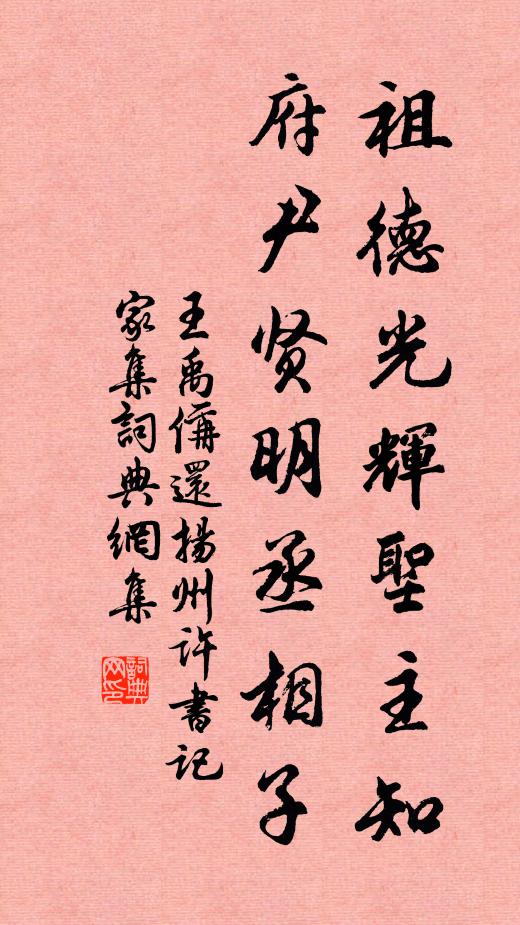 祖德光輝聖主知
府尹贤明丞相子
王禹偁還揚州许書記
家集詞典網集
詞典網印